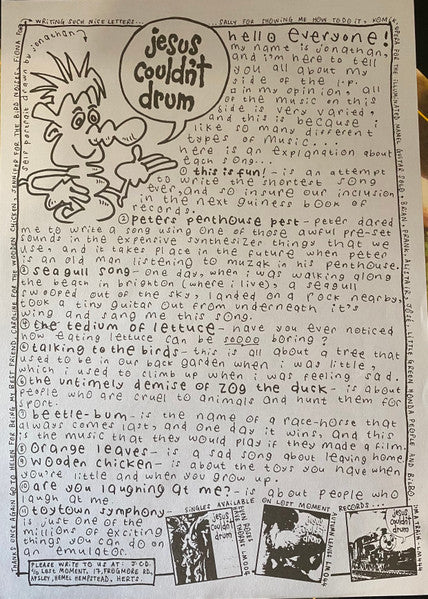 WRITING SUCH NICE LETTERS...
...SALLY FOR SHOWING ME HOW TO DO IT,
self portrait drawn by jonathan
jesus
couldn't
drum
hello everyone!
my name is jonathan,
and i'm here to tell
you all about my
side of the l.p.
in my opinion, all
of the music on this
side is very varied,
and this is because i
like so many different
types of music...
here is an explanation about
each song...
① this is fun! - is an attempt
to write the shortest song
ever, and so insure our inclusion
in the next guiness book of
records.
② peters penthouse pest - peter dared
me to write a song using one of those awful pre-set
sounds in the expensive synthesizer things that we
use, and it takes place in the future when peter
is an old man listening to muzak in his penthouse.
③ seagull song - one day, when i was walking along
the beach in brighton (where i live), a seagull
swooped out of the sky, landed on a rock nearby,
took a tiny guitar out from underneath it's
wing and sang me this song.
④ the tedium of lettuce - have you ever noticed
how eating lettuce can be soooo boring?
⑤ talking to the birds - this is all about a tree that
used to be in our back garden when i was little,
which i used to climb up when i was feeling sad.
⑥ the untimely demise of zog the duck - is about
people who are cruel to animals and hunt them for
sport.
⑦ beetle-bum - is the name of a race-horse that
always comes last, and one day it wins, and this
is the music that they would play if they made a film.
⑧ orange leaves - is a sad song about leaving home
⑨ wooden chicken - is about the toys you have when
you're little and when you grow up.
⑩ are you laughing at me? - is about people who
laugh at me
⑪ toytown symphony -
is just one of the
millions of exciting
things you can do on
an emulator.
SINGLES AVAILABLE ON LOST MOMENT RECORDS...
jesus
couldn't
drum
jesus
couldn't
drum
PLEASE WRITE TO US AT: J.C.D.
C/O LOST MOMENT, 17, FROGMORE RD,
APSLEY, HEMEL HEMPSTEAD, HERTS.
THANKS ONCE AGAIN GO TO HELEN FOR BEING MY BEST FRIEND, CAROLINE FOR THE WOODEN CHICKEN, JENNIFER FOR THE BIRD NOISES, FIONA FOR